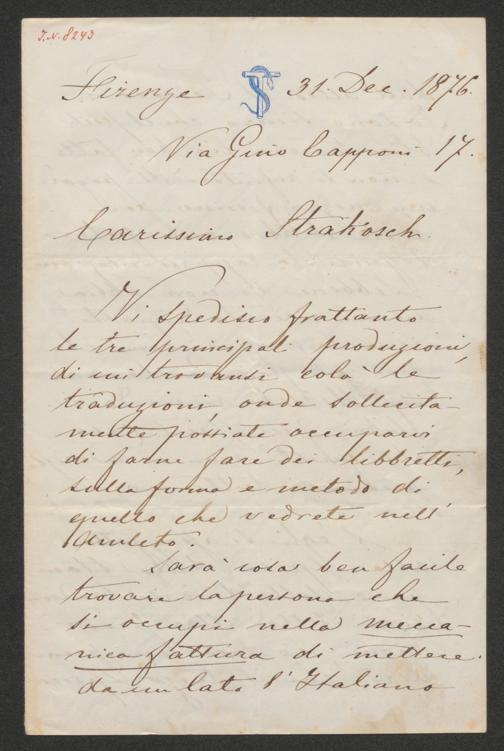 J.N. 8243
Firenze TS 31. Dec. 1876.
Via Gino Capponi 17.
Carissimo Strakosch.
Vi spedisco frattanto
le tre principali produzioni,
di cui trovansi colà le
traduzioni, onde sollecita-
mente possiate occuparvi
di farne fare dei libbretti,
sulla forma e metodo di
quello che vedrete nell'
Amleto.
Sarà cosa ben facile
trovare la persona che
si occupi nella mecca-
nica fattura di mettere
da un lato l'Italiano